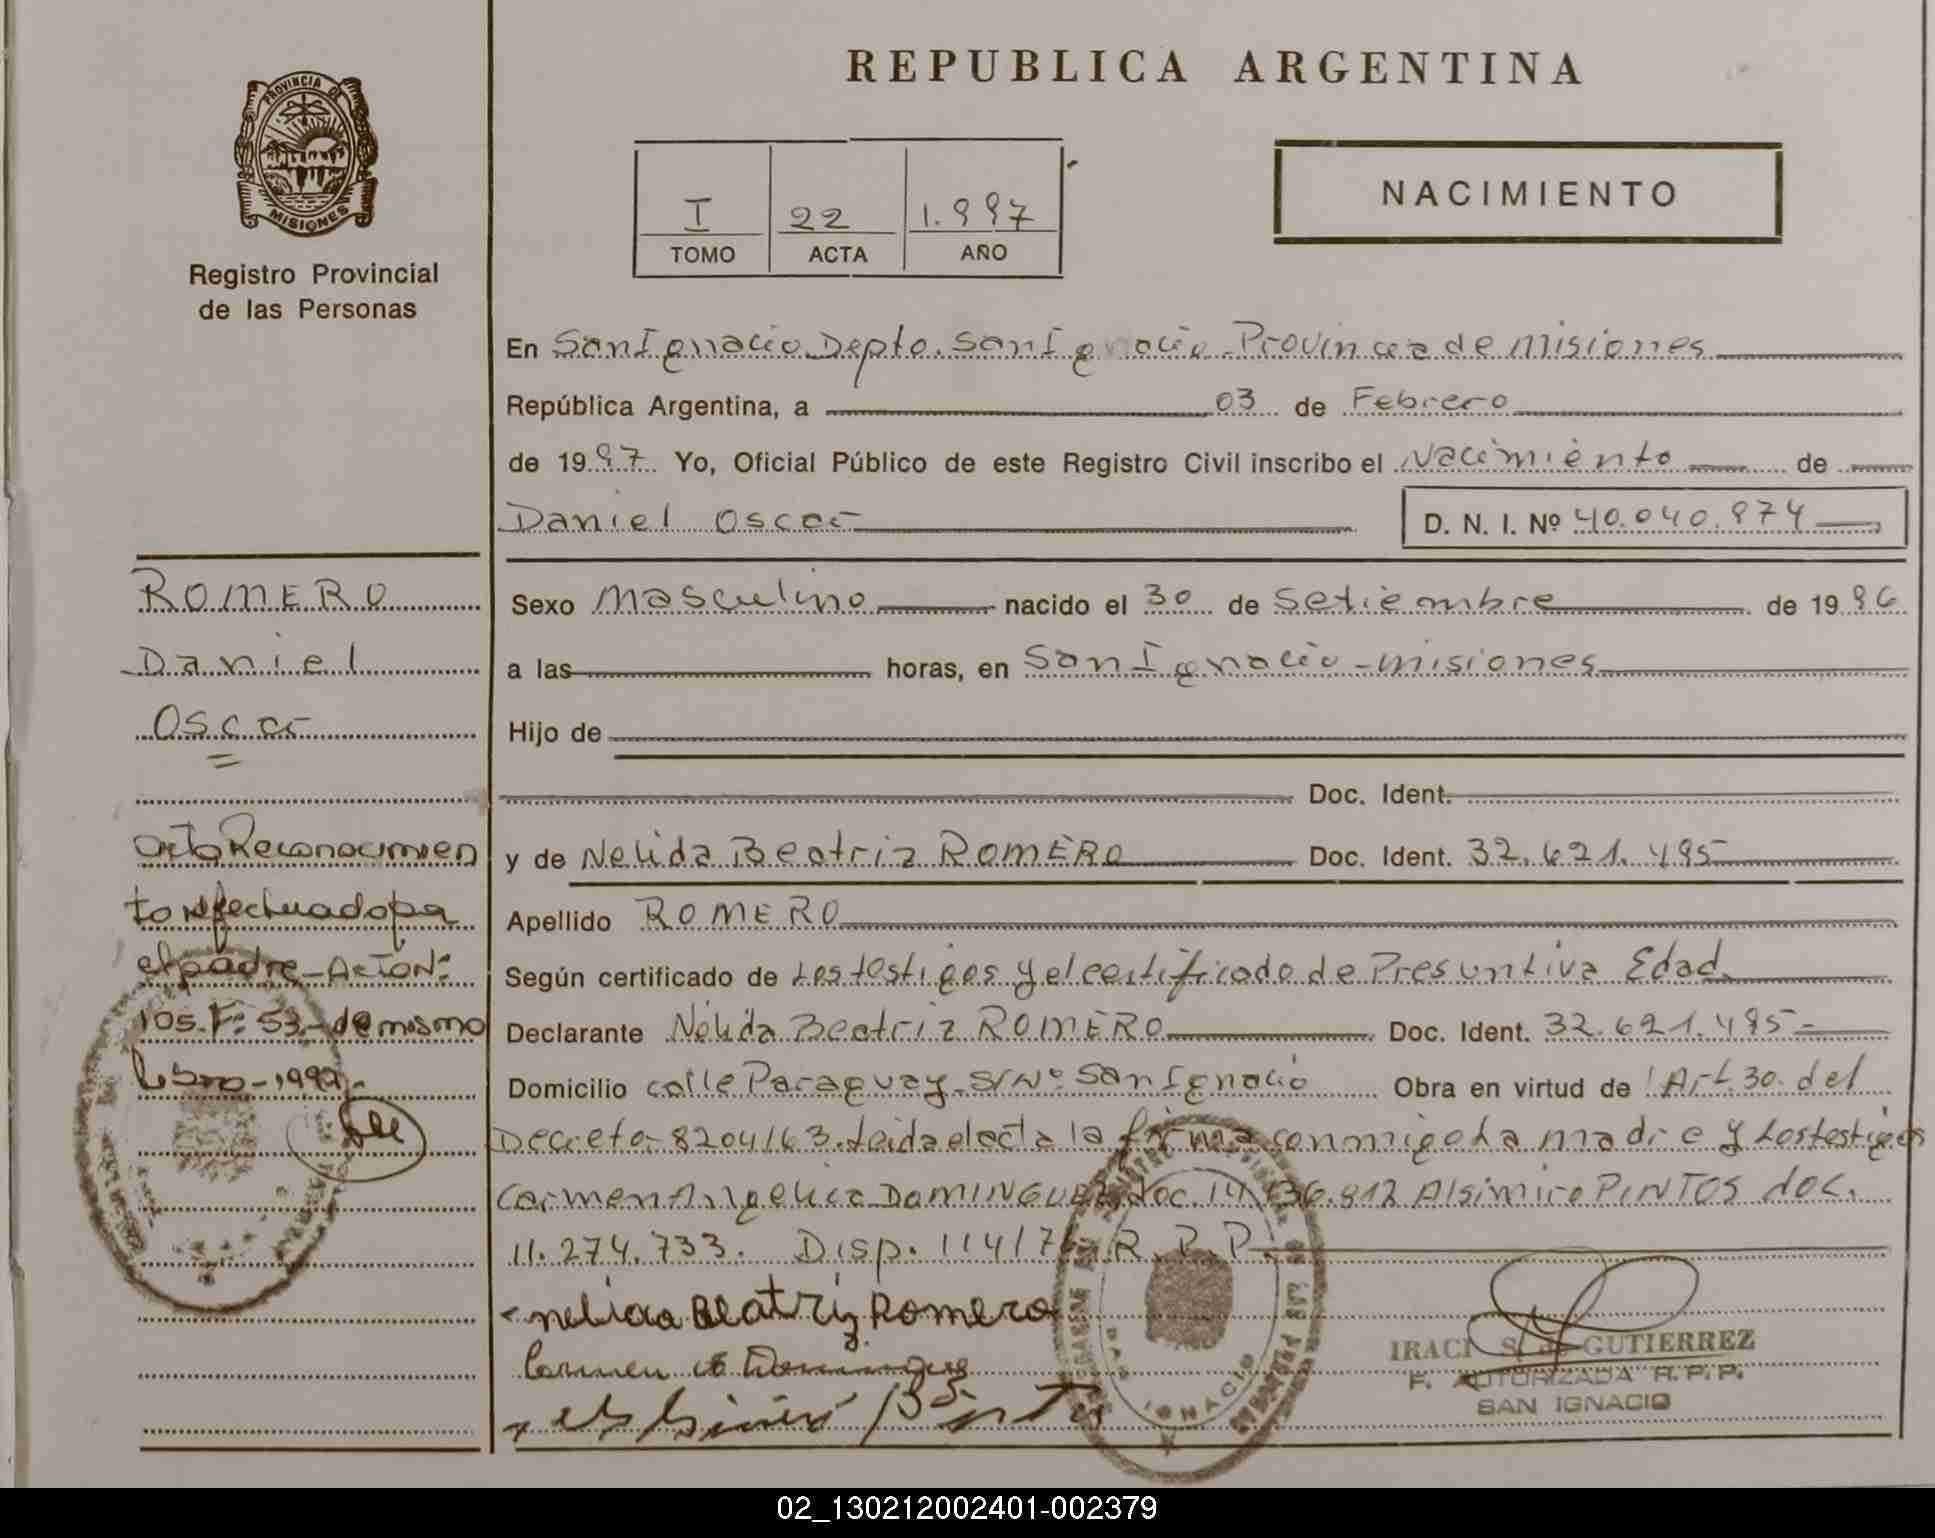 PROVINCIA DE
MISIONES
Registro Provincial
de las Personas
REPUBLICA ARGENTINA
I 22 1.997
TOMO ACTA AÑO
NACIMIENTO
En San Ignacio Depto. San Ignacio Provincia de Misiones
República Argentina, a 03 de Febrero
de 1997 Yo, Oficial Público de este Registro Civil inscribo el Nacimiento de
Daniel Oscar D. N. I. Nº 40.040.974
Sexo Masculino nacido el 30 de Setiembre de 1996
a las horas, en San Ignacio - Misiones
Hijo de
Doc. Ident.
y de Nelida Beatriz ROMERO Doc. Ident. 32.621.495
Apellido ROMERO
Según certificado de Los testigos y el certificado de Presuntiva Edad
Declarante Nelida Beatriz ROMERO Doc. Ident. 32.621.495-
Domicilio calle Paraguay S/Nº San Ignacio Obra en virtud de Art. 30 del
Decreto 8204/63. Leida el acta la firma conmigo La madre y Los testigos
Carmen Angelica DOMINGUEZ doc. 14. Alsimiro PINTOS doc.
11.274.733. Disp. 114/7 R.P.P.
Nelida Beatriz Romero
Carmen A Dominguez
IRACI GUTIERREZ
F. AUTORIZADA R.P.P.
SAN IGNACIO
ROMERO
Daniel
Oscar
Acto Reconocimien
to efectuado por
el padre - Acta Nº
105. Fº 53 - de mismo
Libro - 1997 -
02_130212002401-002379